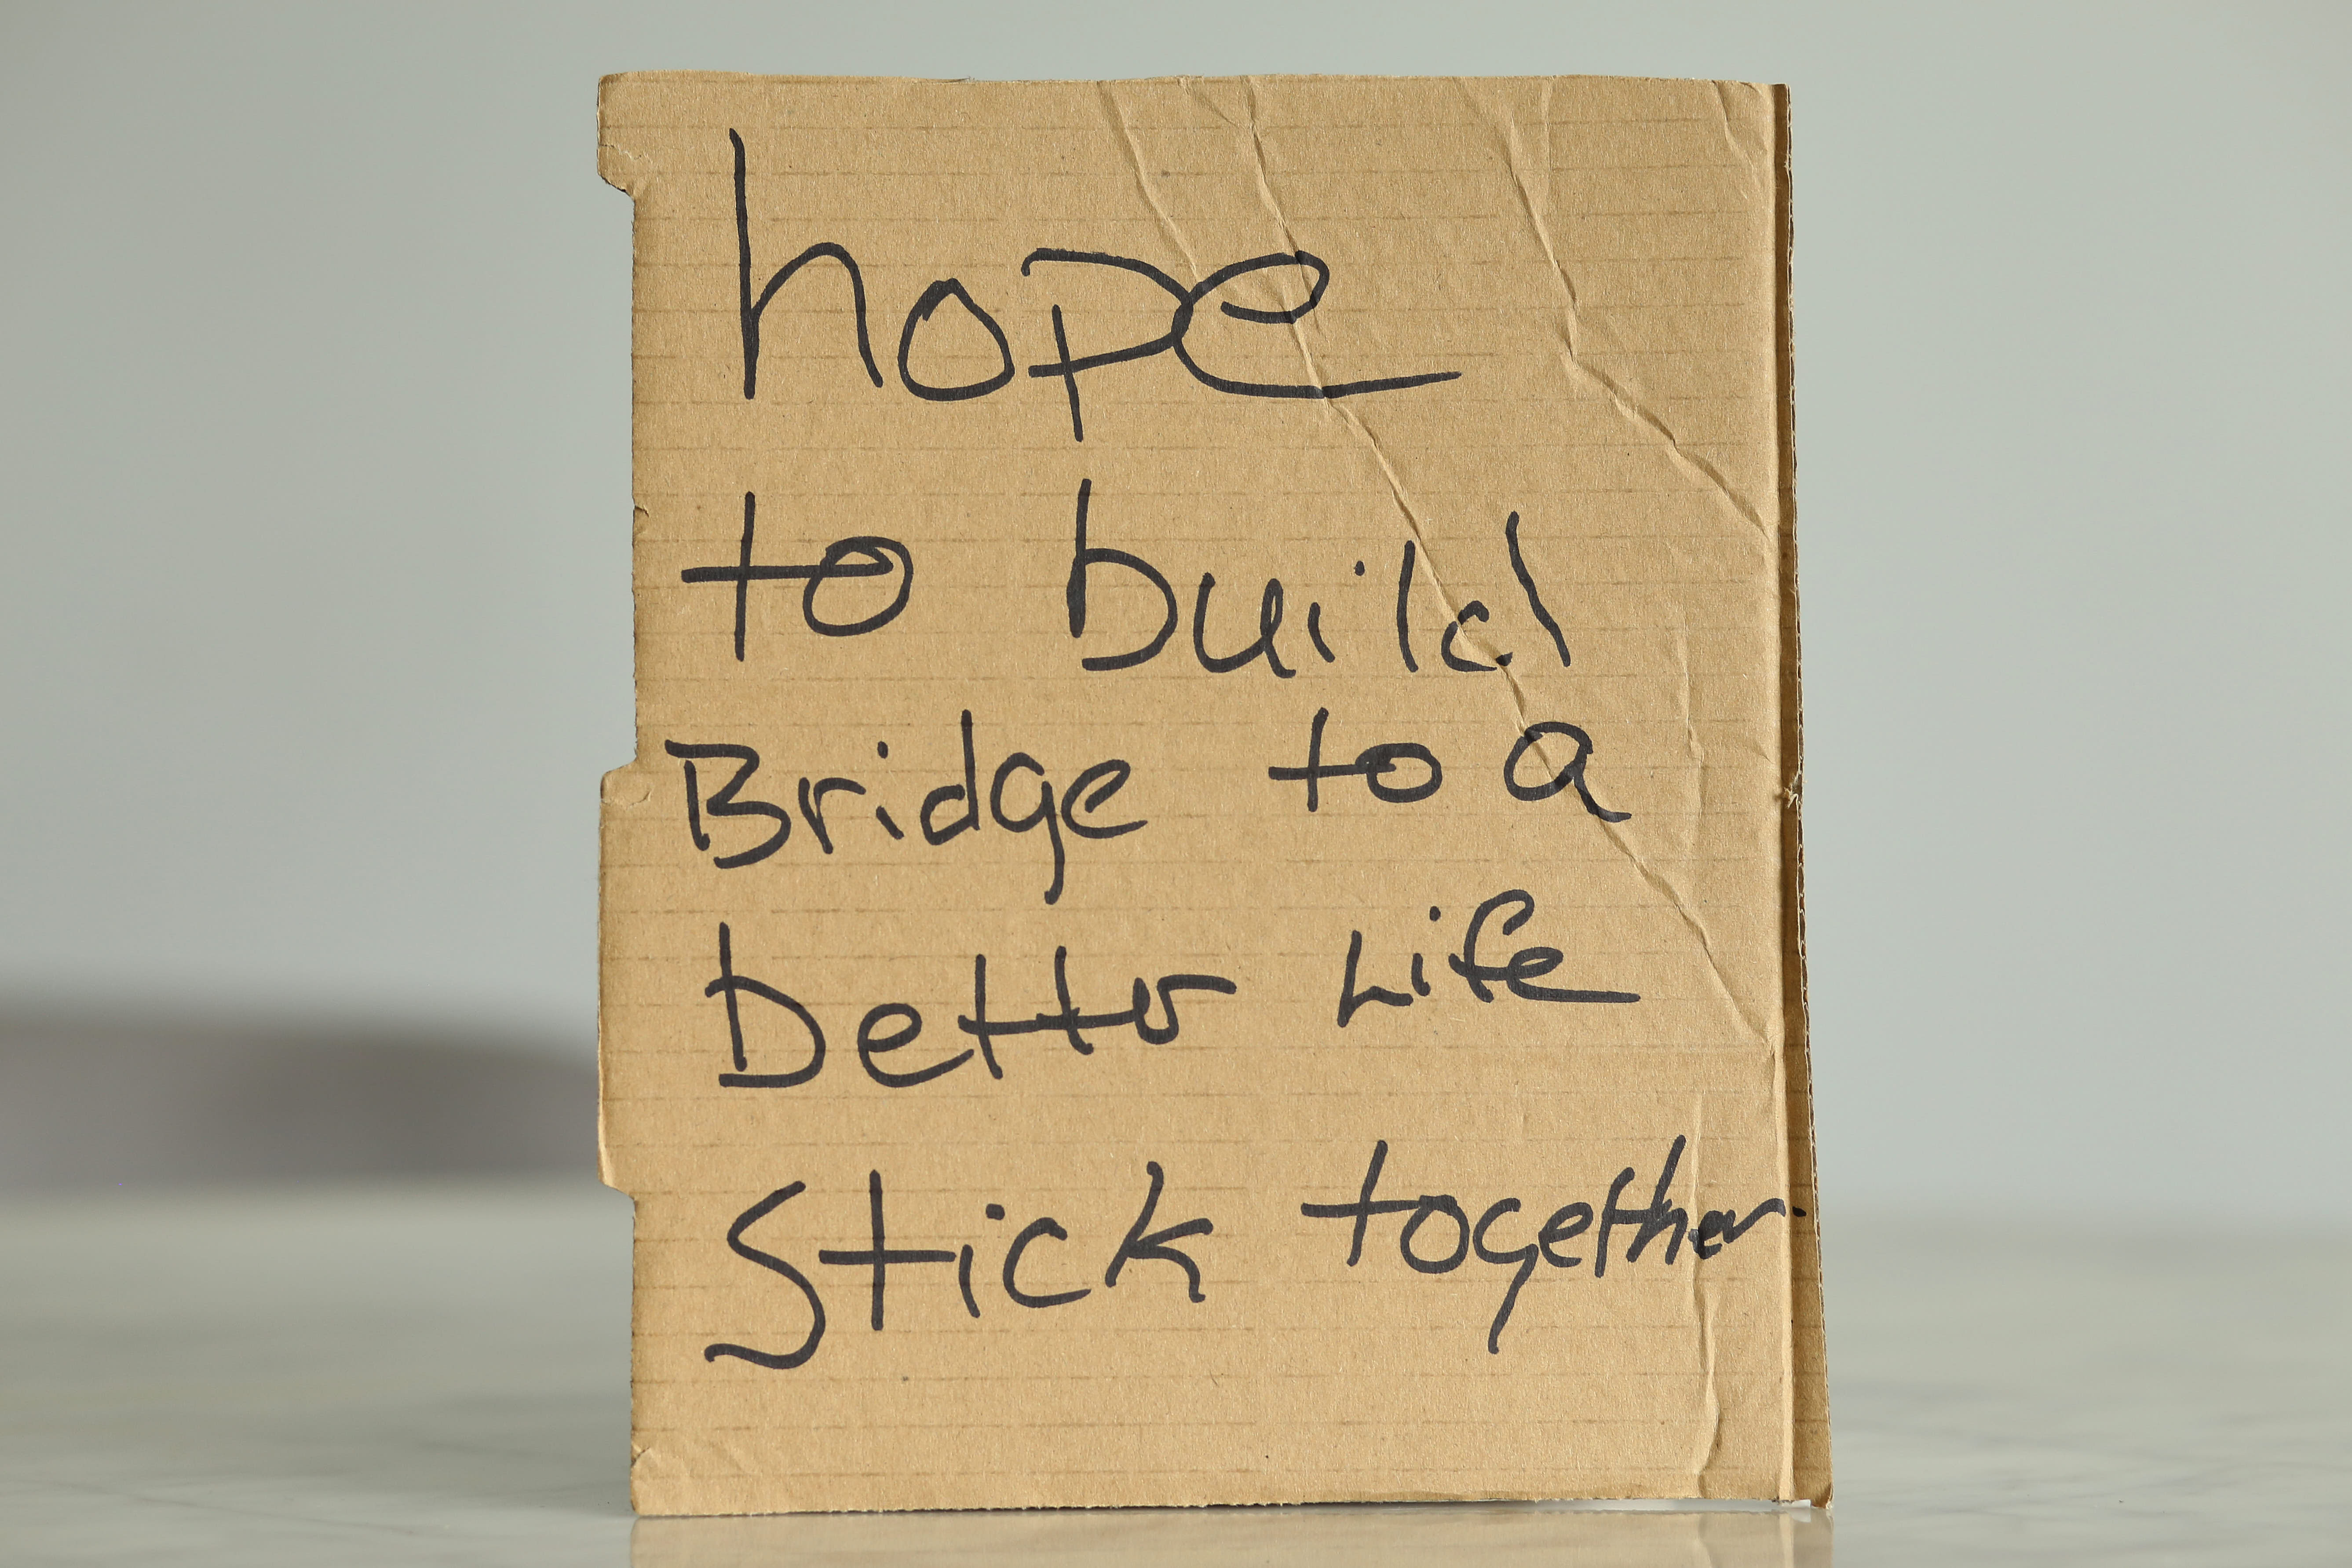 hope
to build
Bridge to a
better Life
Stick together.